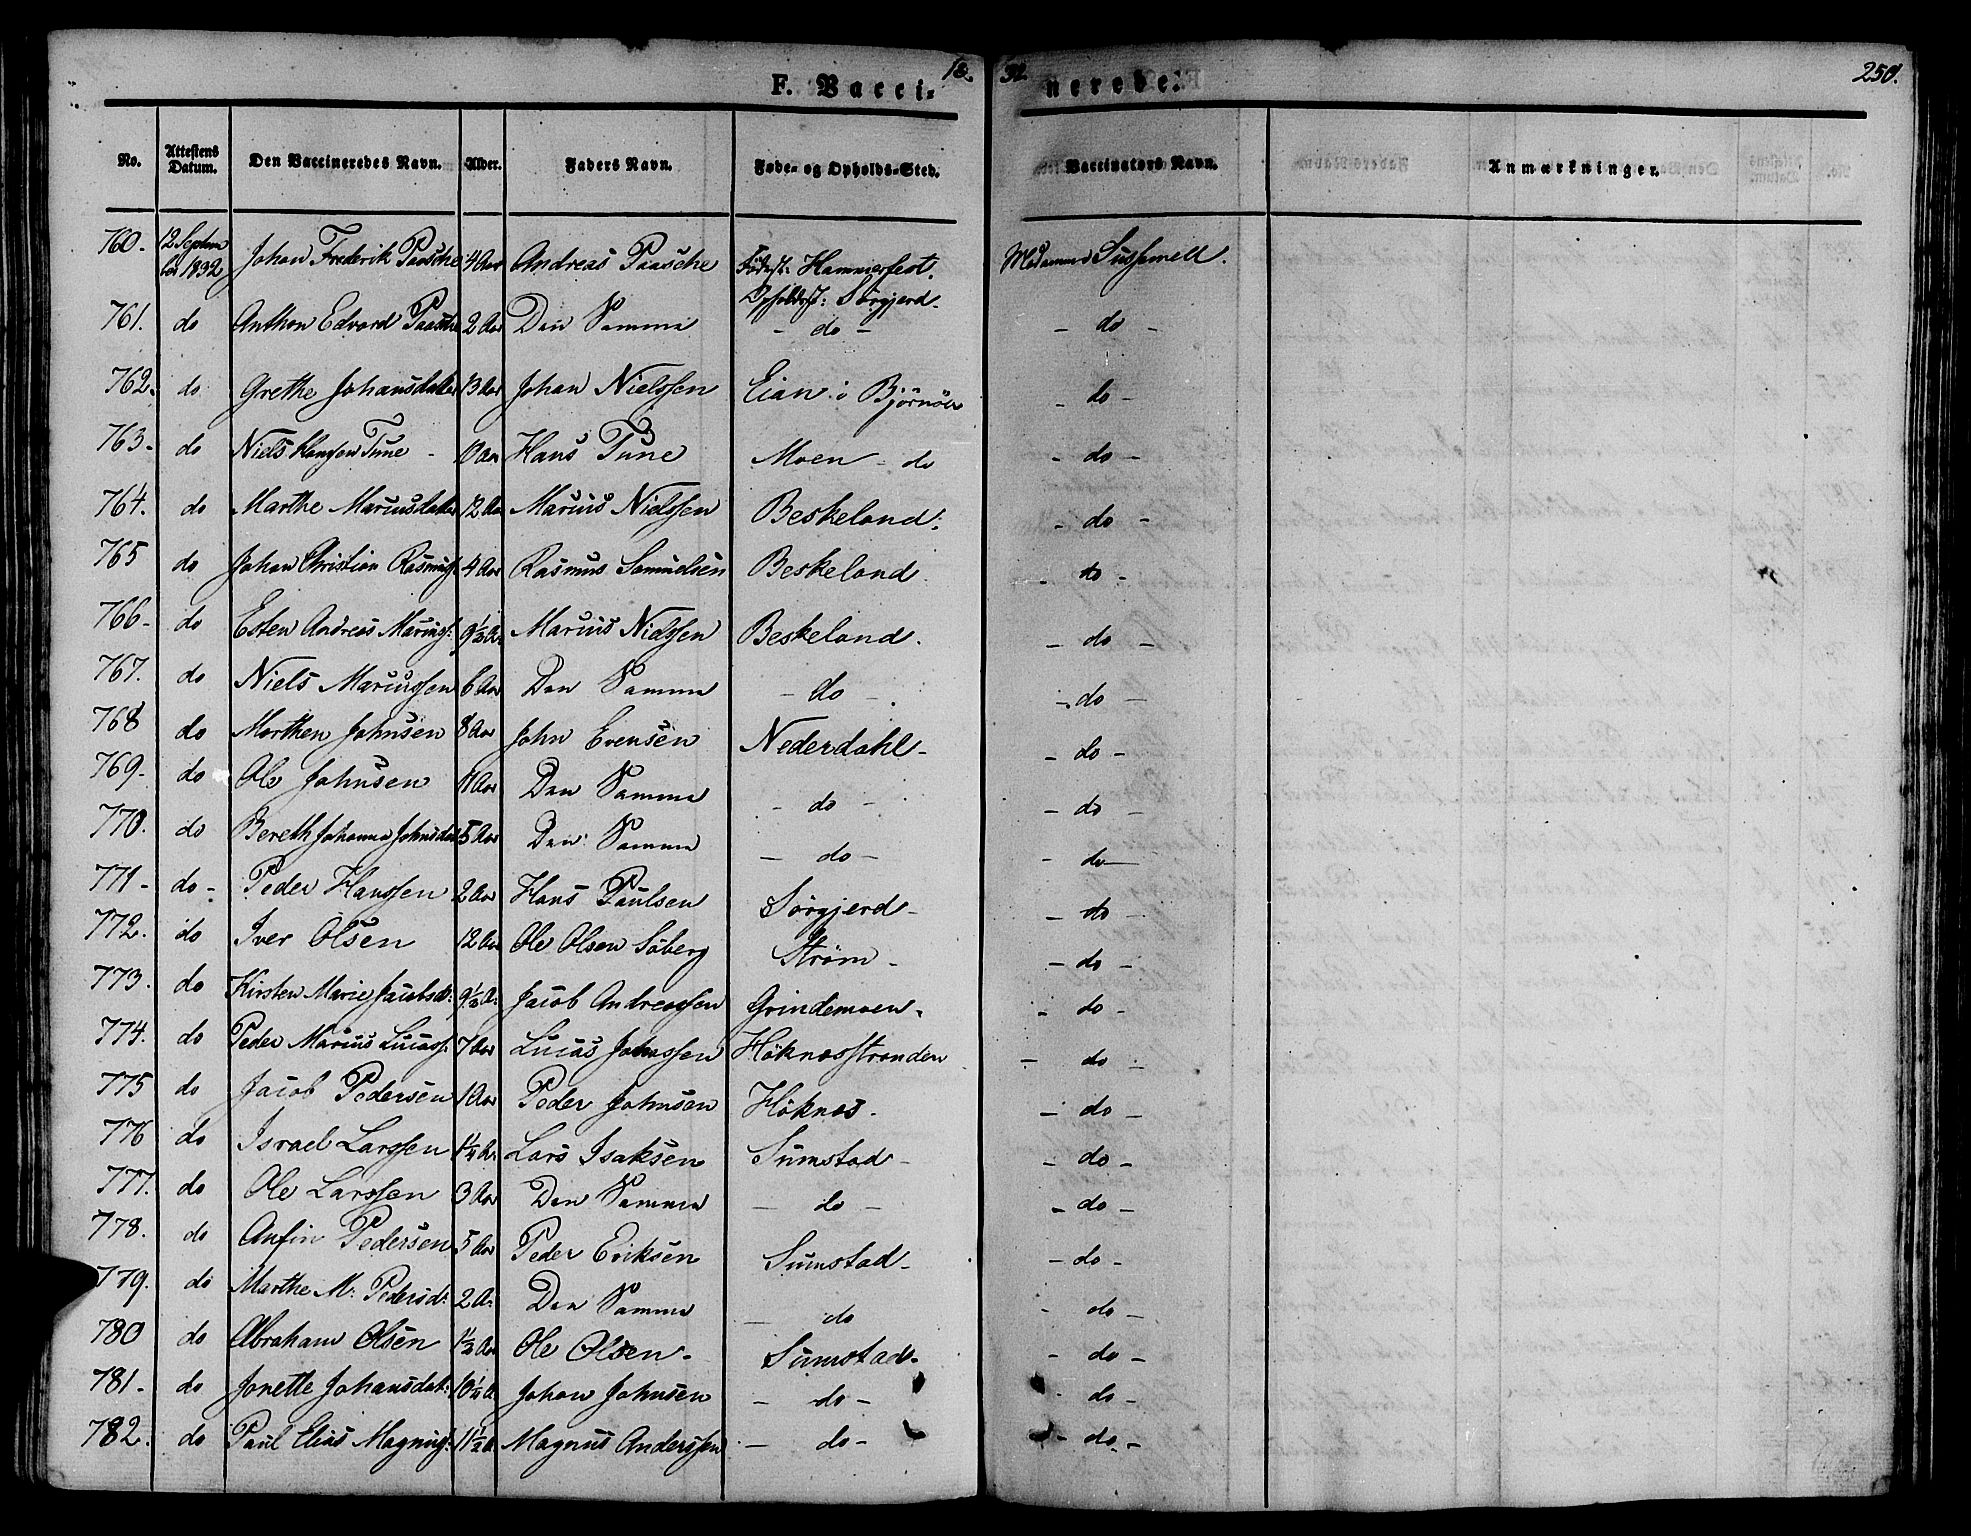 18 32. 250.
F. Vacci- nerede.
No. Attestens Datum. Den Vaccineredes Navn. Alder. Faders Navn. Føde- og Opholds-Sted. Vaccinators Navn. Anmærkninger.
760. 12 Septem ber 1832 Johan Frederik Paasche 4 Aar Andreas Paasche Fødest: Hammerfest. Opholdsst: Sørgjerd. Madamme Sussemell.
761. do Anthon Edvard Paasche 2 Aar Den Samme - do - - do -
762. do Grethe Johansdatter 13 Aar Johan Nielssen Eian i Bjørnöer - do -
763. do Niels Hansen Tune - 10 Aar Hans Tune Moen - do - do -
764. do Marthe Mariusdatter 12 Aar Marius Nielssen Beskeland: - do -
765 do Johan Christian Rasmuss: 4 Aar Rasmus Samuelsen Beskeland. - do -
766. do Esten Andreas Mariuss: 9½ A. Marius Nielssen Beskeland. - do -
767. do Niels Mariussen 6 Aar Den Samme - do - - do -
768 do Morthen Johnsen 8 Aar John Evensen Nederdahl - - do -
769. do Ole Johnsen 11 Aar Den Samme - do - - do -
770. do Bereth Johanna Johnsdat 5 Aar Den Samme - do - - do -
771. do - Peder Hanssen 2 Aar Hans Paulsen Sørgjerd - - do -
772. do Iver Olsen 12 Aar Ole Olsen Søberg Strøm - - do -
773. do Kirsten Marie Jacobsd: 9½ A. Jacob Andreassen Grindemoen. - do -
774. do Peder Marius Lucass: 7 Aar Lucas Johnssen Höknesstranden - do -
775 do Jacob Pedersen 1 Aar Peder Johnsen Höknes. - do -
776 do Israel Larssen 1¼ A. Lars Isaksen Sumstad - - do -
777. do Ole Larssen 3 Aar Den Samme - do - - do -
778. do Anfin Pedersen 5 Aar Peder Eriksen Sumstad - - do -
779. do Marthe M. Pedersd: 2 A. Den Samme - do - do -
780 do Abraham Olsen 1½ Aar Ole Olsen - Sumstad - - do -
781. do Jonette Johansdat: 10¼ A. Johan Johnsen - do - - do -
782. do Paul Elias Magnuss: 11½ A. Magnus Anderssen - do - - do -